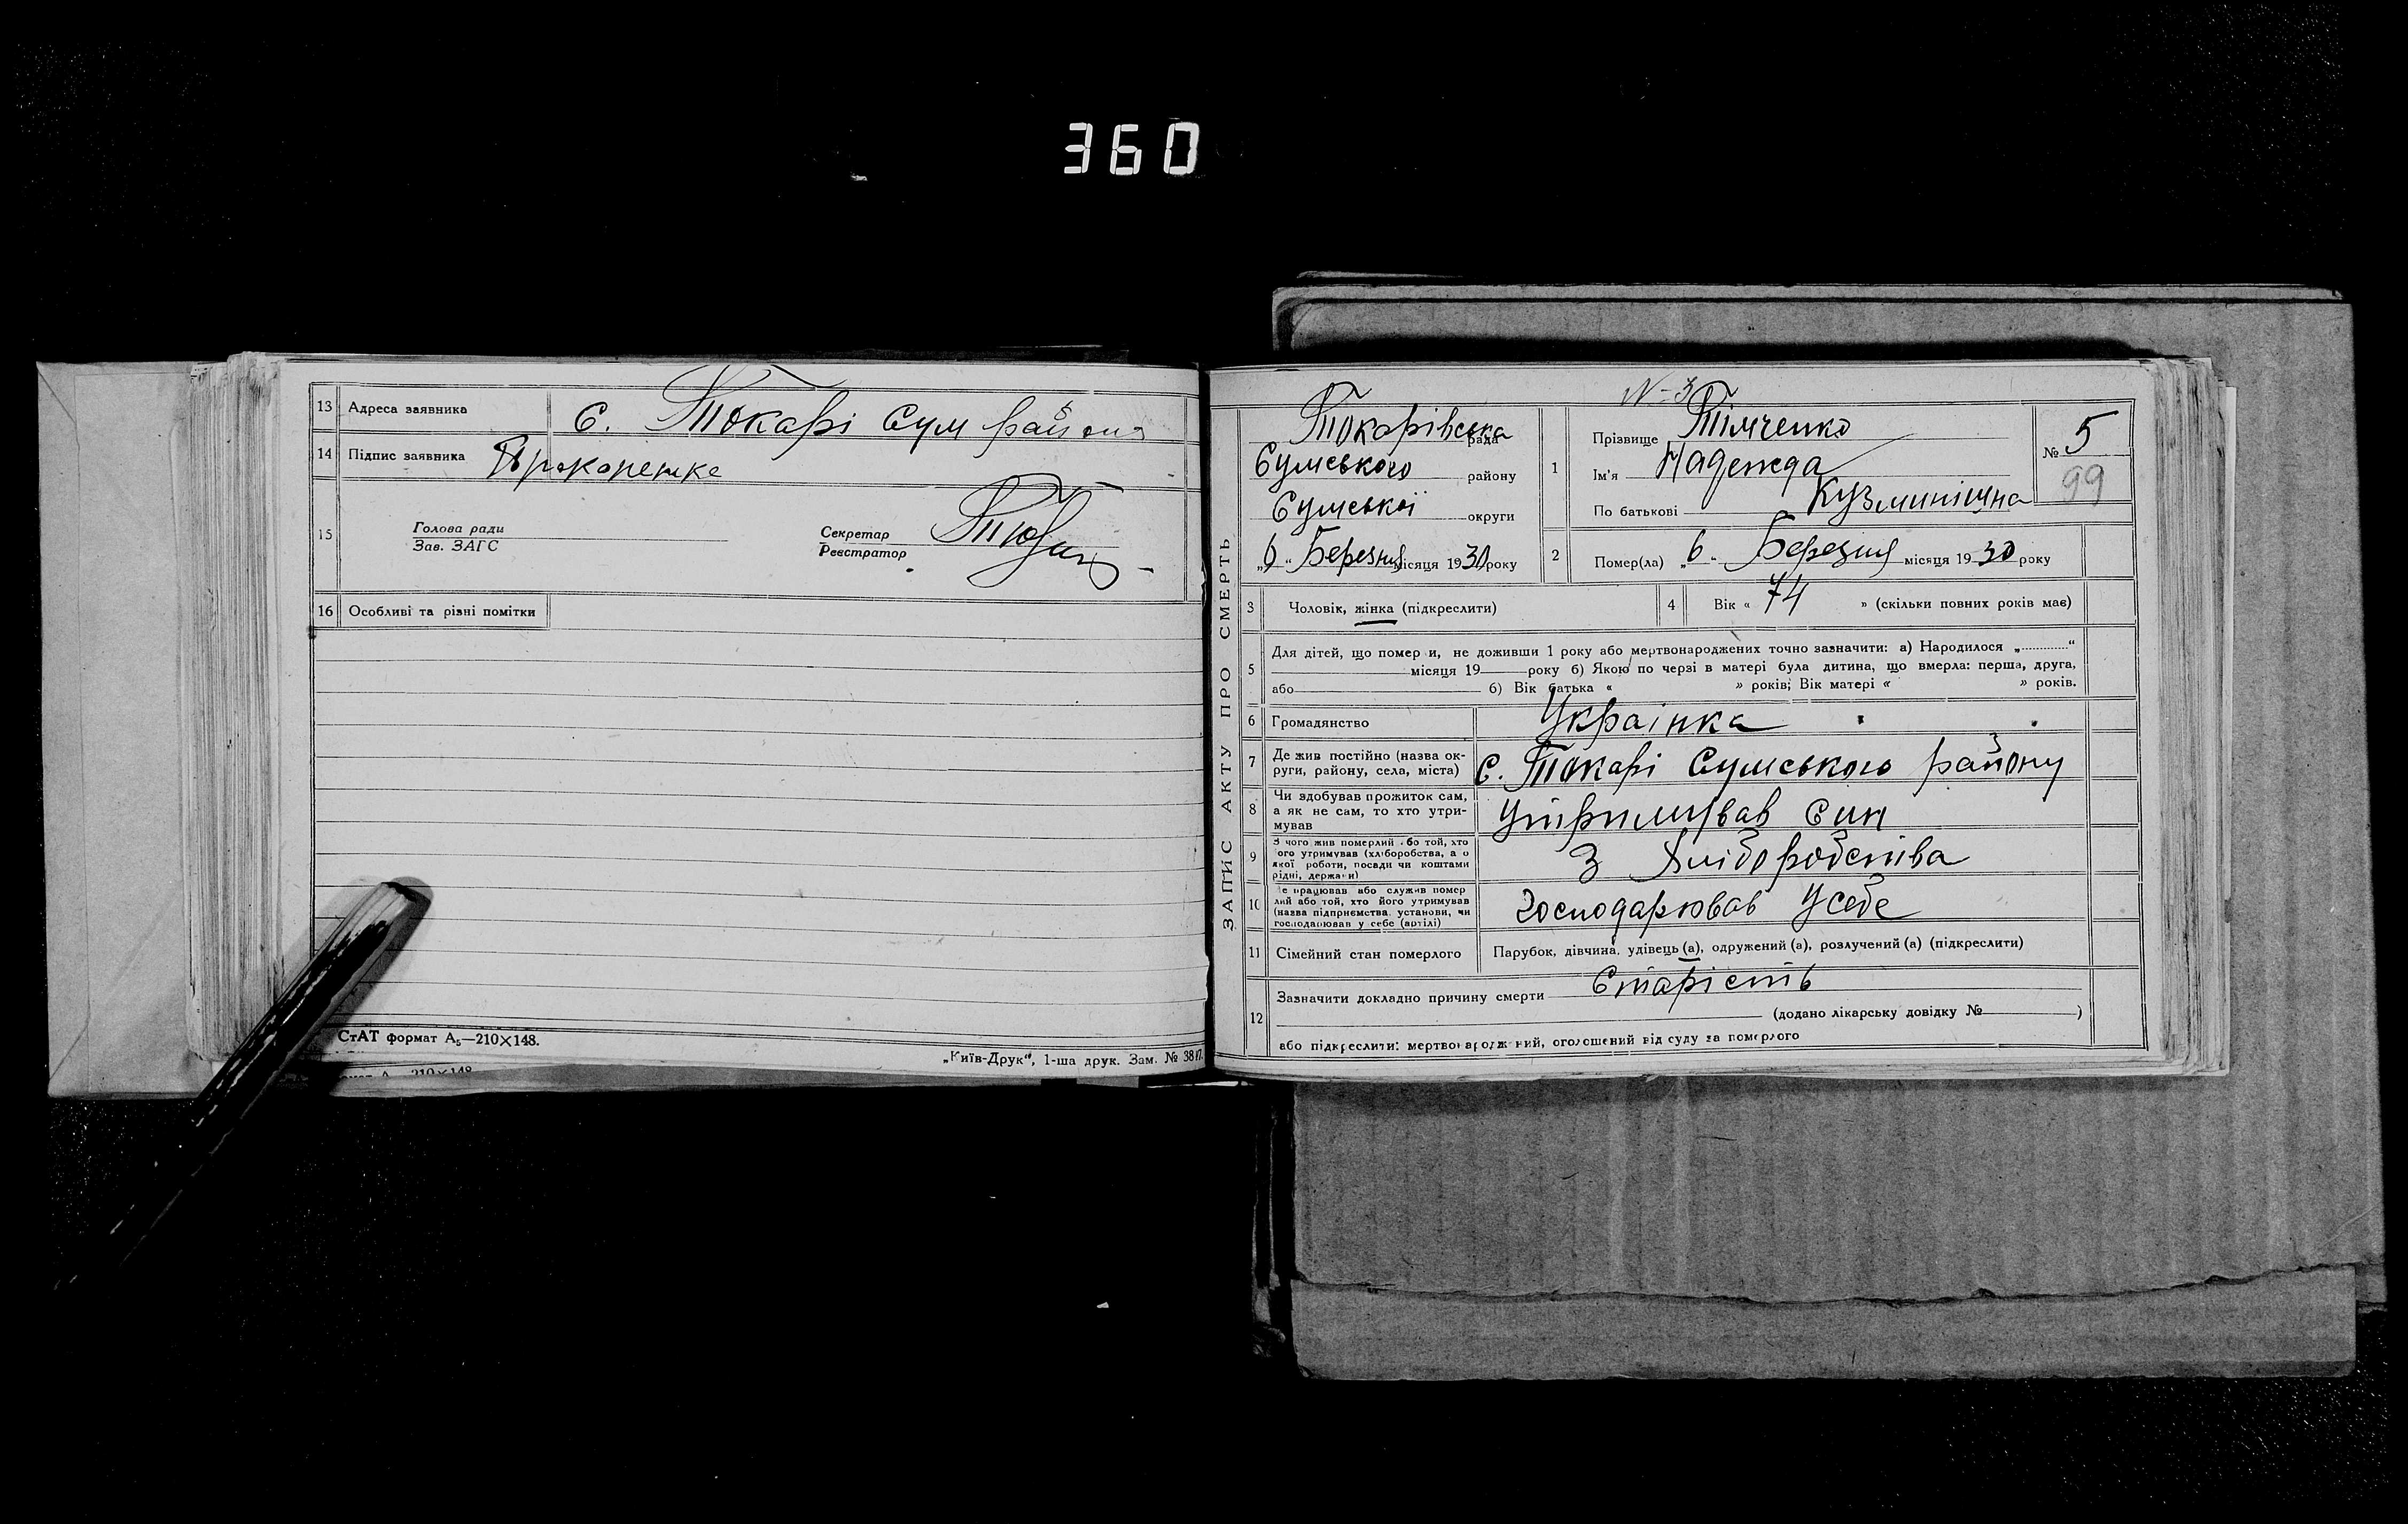 360
13 Адреса заявника С. Токарі Сум района
14 Підпис заявника
15 Голова ради
Зав. ЗАГС
Секретар
Реєстратор
16 Особливі та різні помітки
СтАТ формат А₅—210×148.
„Київ-Друк“, 1-ша друк. Зам. №
210×148
ЗАПИС АКТУ ПРО СМЕРТЬ
N-3
Токарівська рада
Сумського району
Сумської округи
„6“ Березня місяця 1930 року
1 Прізвище Тімченко
Ім'я Надежда
По батькові Кузминішна
№ 5
99
2 Помер(ла) „6“ Березня місяця 1930 року
3 Чоловік, жінка (підкреслити)
4 Вік « 74 » (скільки повних років має)
5 Для дітей, що помер и, не доживши 1 року або мертвонароджених точно зазначити: а) Народилося „.............“
місяця 19 року б) Якою по черзі в матері була дитина, що вмерла: перша, друга,
або б) Вік батька « » років; Вік матері « » років.
6 Громадянство Украінка
7 Де жив постійно (назва ок-
руги, району, села, міста) с. Токарі Сумського району
8 Чи здобував прожиток сам,
а як не сам, то хто утри-
мував Утримував син
9 З чого жив померлий або той, хто
його утримував (хліборобства, а о
якої роботи, посади чи коштами
рідні, держави) З Хліборобства
10 е працював або служив помер
лий або той, хто його утримував
(назва підприємства, установи, чи
господарював у себе (артілі) Господарював Усебе
11 Сімейний стан померлого Парубок, дівчина, удівець (а), одружений (а), розлучений (а) (підкреслити)
12 Зазначити докладно причину смерти Старість
(додано лікарську довідку № )
або підкреслити: мертвонароджений, оголошений від суду за померлого